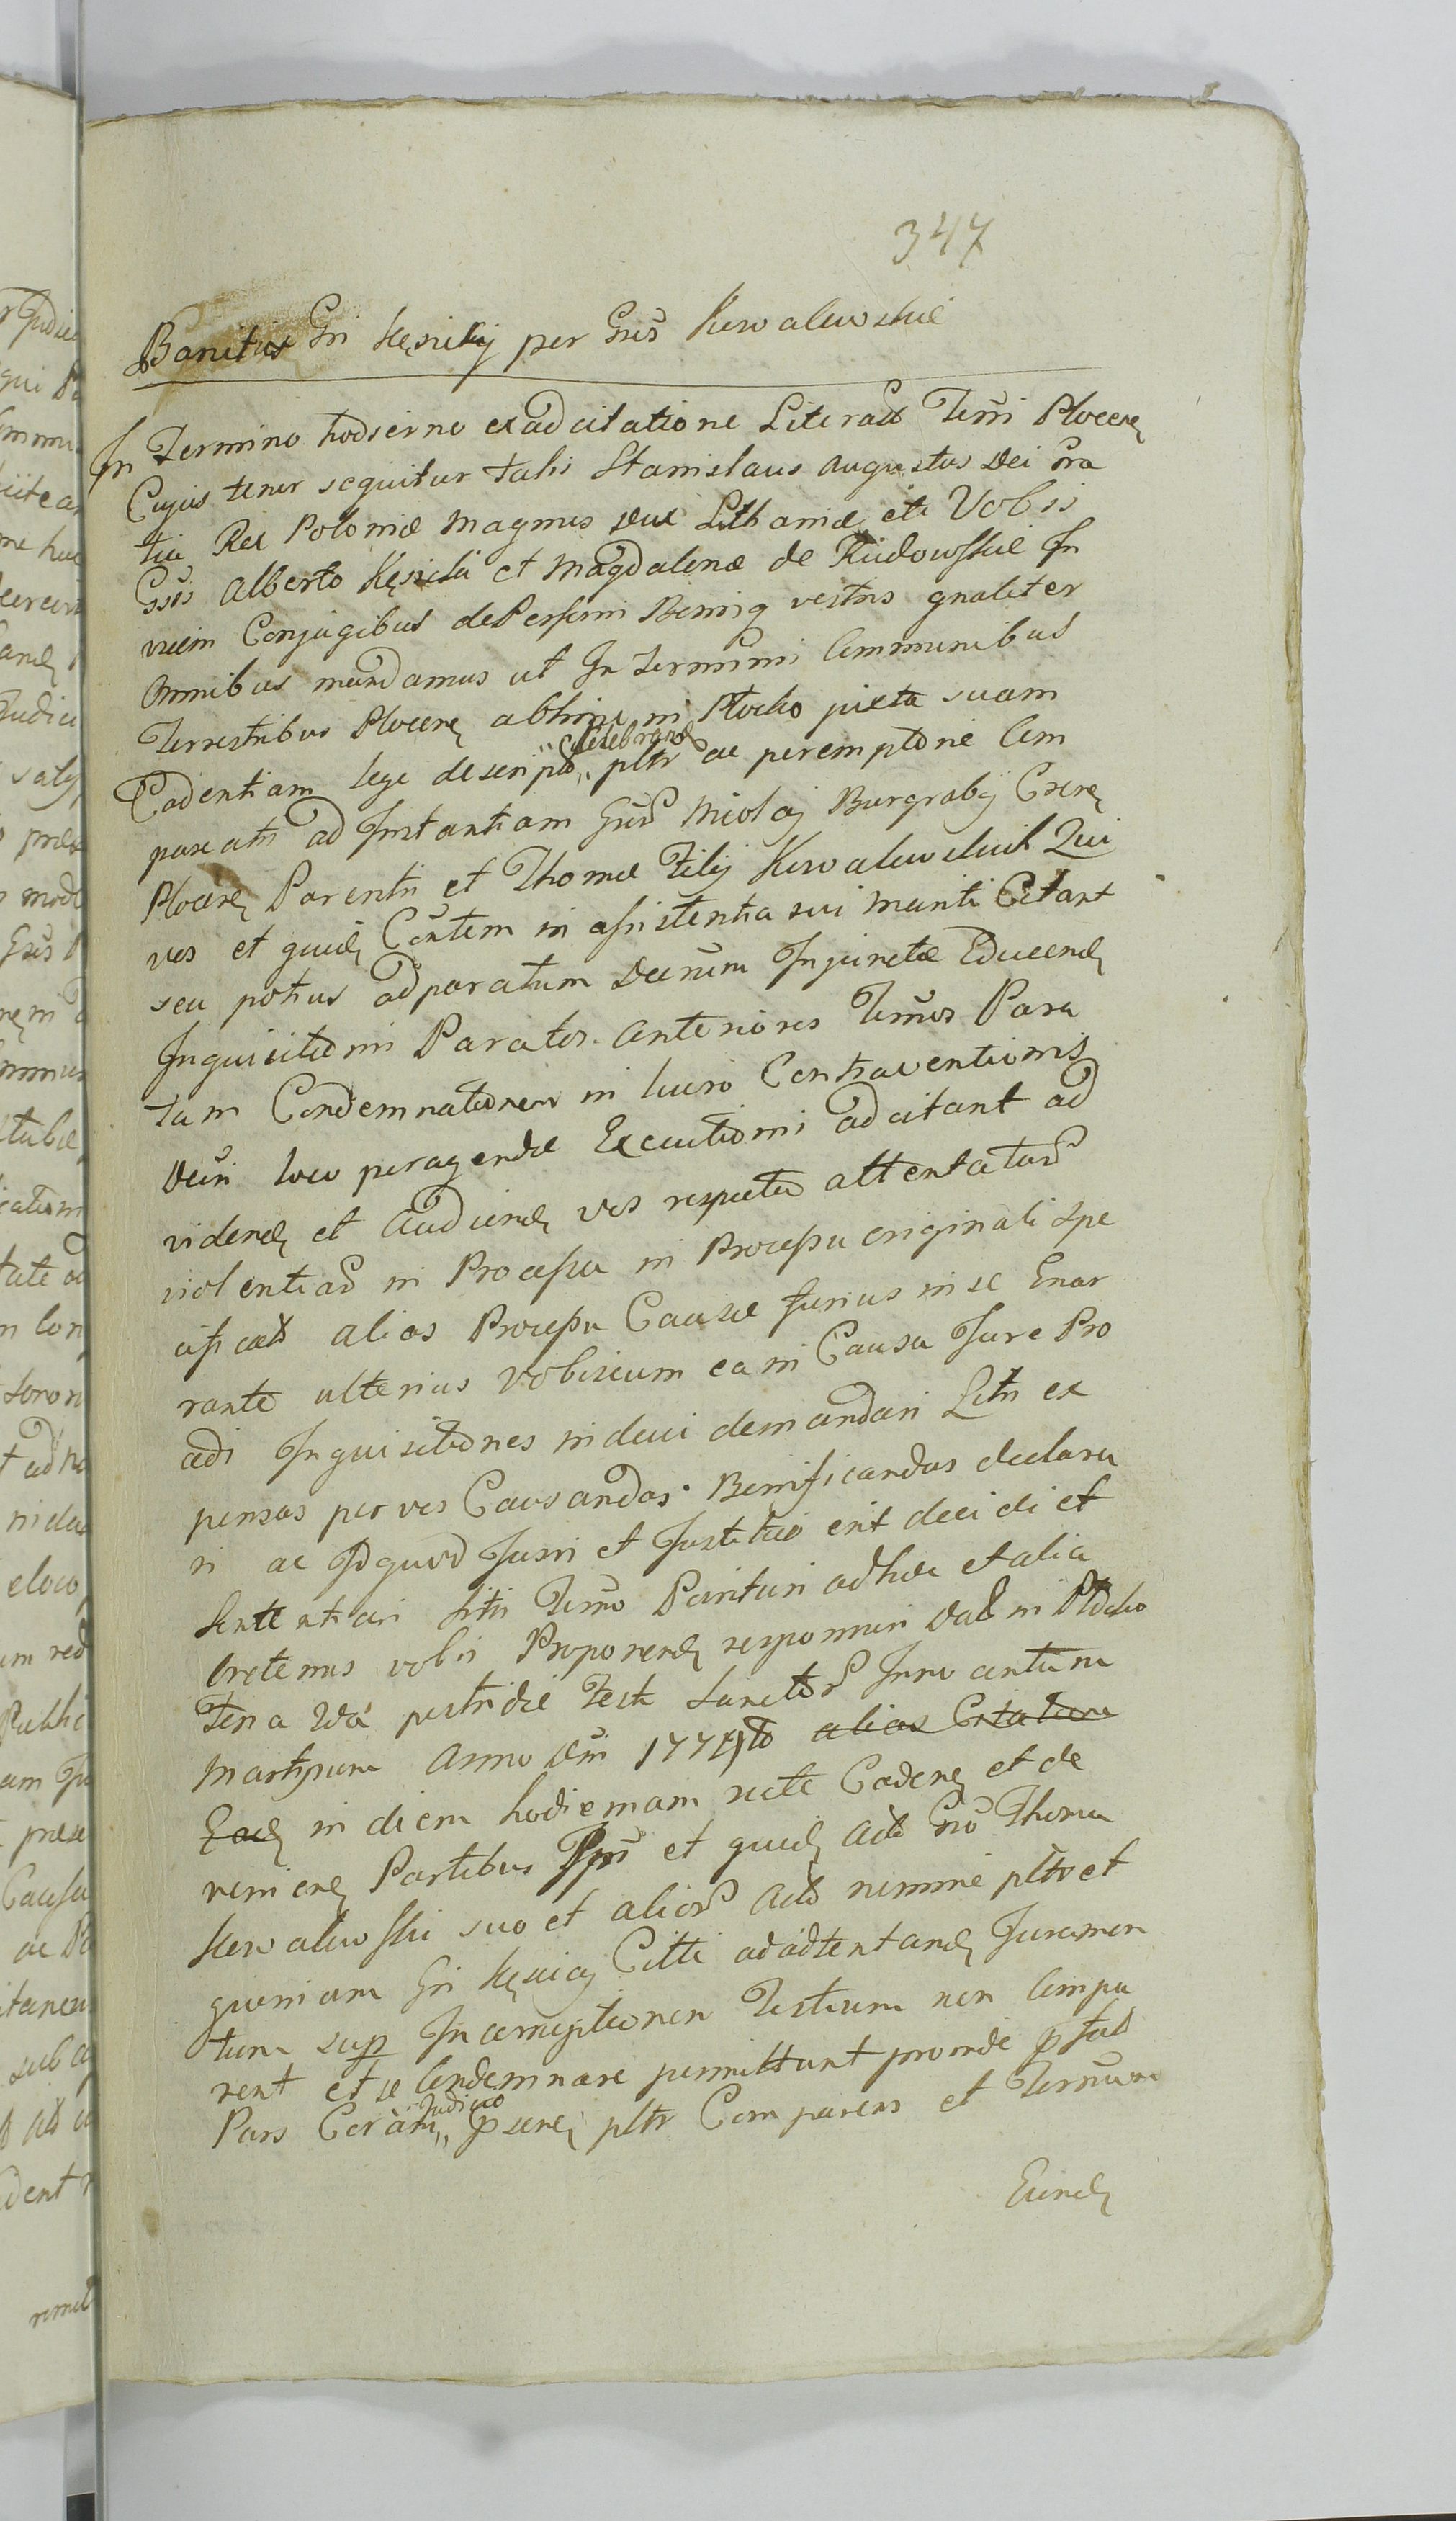 347
Banitio Gri Kęsicky per Gres Kowalewskie
In Termino hodierno ex adcitatione Literali Terri Plocen
Cujus tenor sequitur talis Stanislaus Augustus Dei Gra
tia Rex Poloniæ Magnus Dux Lithaniæ etc Vobis
Gsis Alberto Kęsicki et Magdalenæ de Rudowskie In
vicem Conjugibus de Personis Bonisq vestris gnaliter
Omnibus mandamus ut In Terminis Communibus
Terrestribus Plocen abhinc in Plocko juxta suam
Cadentiam lege descripto „celebrand„ pltr ac peremptorie Com
pareatis ad Instantiam Gres Nicolaj Burgrabij Cseren
Plocen Parentis et Thomæ Filij Kowalewskich Qui
vos et quidem Contem in assistentia sui Mariti Citant
seu potius ad paratum Decreum Injunctæ Educend
Inquisitioni Parator. anteriores Termos Para
tam Condemnationem in lucro Contraventionis
Decri loco peragendæ Executioni adcitant ad
vidend et Audiend vos respectu attentatar
violentiar in Processu in Processu originali spe
cificat alias Processu Causæ furius in se Enar
rante ulterius Vobiscum ea in Causa Jure Pro
cedi Inquisitiones induci demandari Litis ex
pensas per vos Causandas Bonificandas declara
ri ac Id quod Juris et Justitiæ erit decidi et
Sententiari Sitis Termo Parituri adhuc et alia
bretenus vobis Proponend responsuri Dat in Plocko
Feria 2da postridie Festi Sanctor Innocentum
Martyrum Anno Dni 1774to alias Citatione
Ead in diem hodiernam recte Caden et de
venien Partibus Ipsis et quidem Acto Gro Thoma
Kowalewski suo et alior Act nomine pltr et
quoniam Gri Kęsicy Citti ad adtentand Juramen
tum sup Incorruptionem Testium non Compa
rent et se Condemnare permittunt proinde p̱fat
Pars Coram „Judicio„ p̱sen pltr Comparens et Terminum
Eund